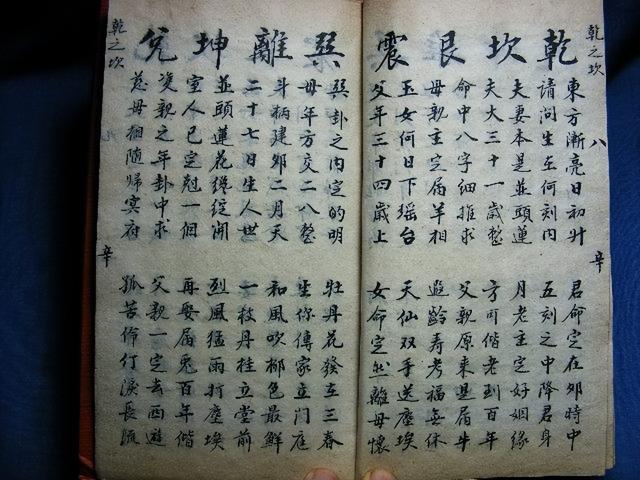 乾之坎
八
辛
乾坎艮震
東方漸亮日初升
君命定在卯時中
請問生在何刻內
五刻之中降君身
夫妻本是並頭蓮
月老主定好姻緣
夫大三十一歲整
方可偕老到百年
命中八字細推求
父親原來是屬牛
母親主定屬羊相
遐齡寿考福無休
玉女何日下瑶台
天仙双手送塵埃
父年三十四歲上
女命定生離母懷
巽離坤兌
巽卦之內定的明
牡丹花發在三春
母年方交二八整
你傳家立門庭
斗柄建卯二月天
和風吹柳色最鮮
二十七日生人世
一枝丹桂立堂前
並頭蓮花纔綻開
烈風猛雨打塵埃
室人已定尅一個
再娶屬兔百年偕
双親之年卦中求
父親一定去西遊
慈母相隨歸冥府
孤苦伶仃淚長流
乾之坎
辛